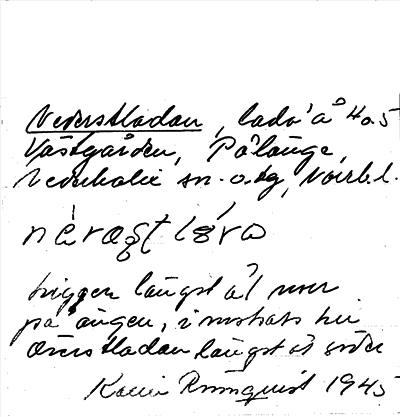 Nederstladan, lada å 4o.5
Västgården, Pålänge,
Nederkalix sn. o. tg, Norrb.l.
ligger längst åt norr
på ängen, i motsats till
Överstladan längst åt söder
Karin Runnquist 1945